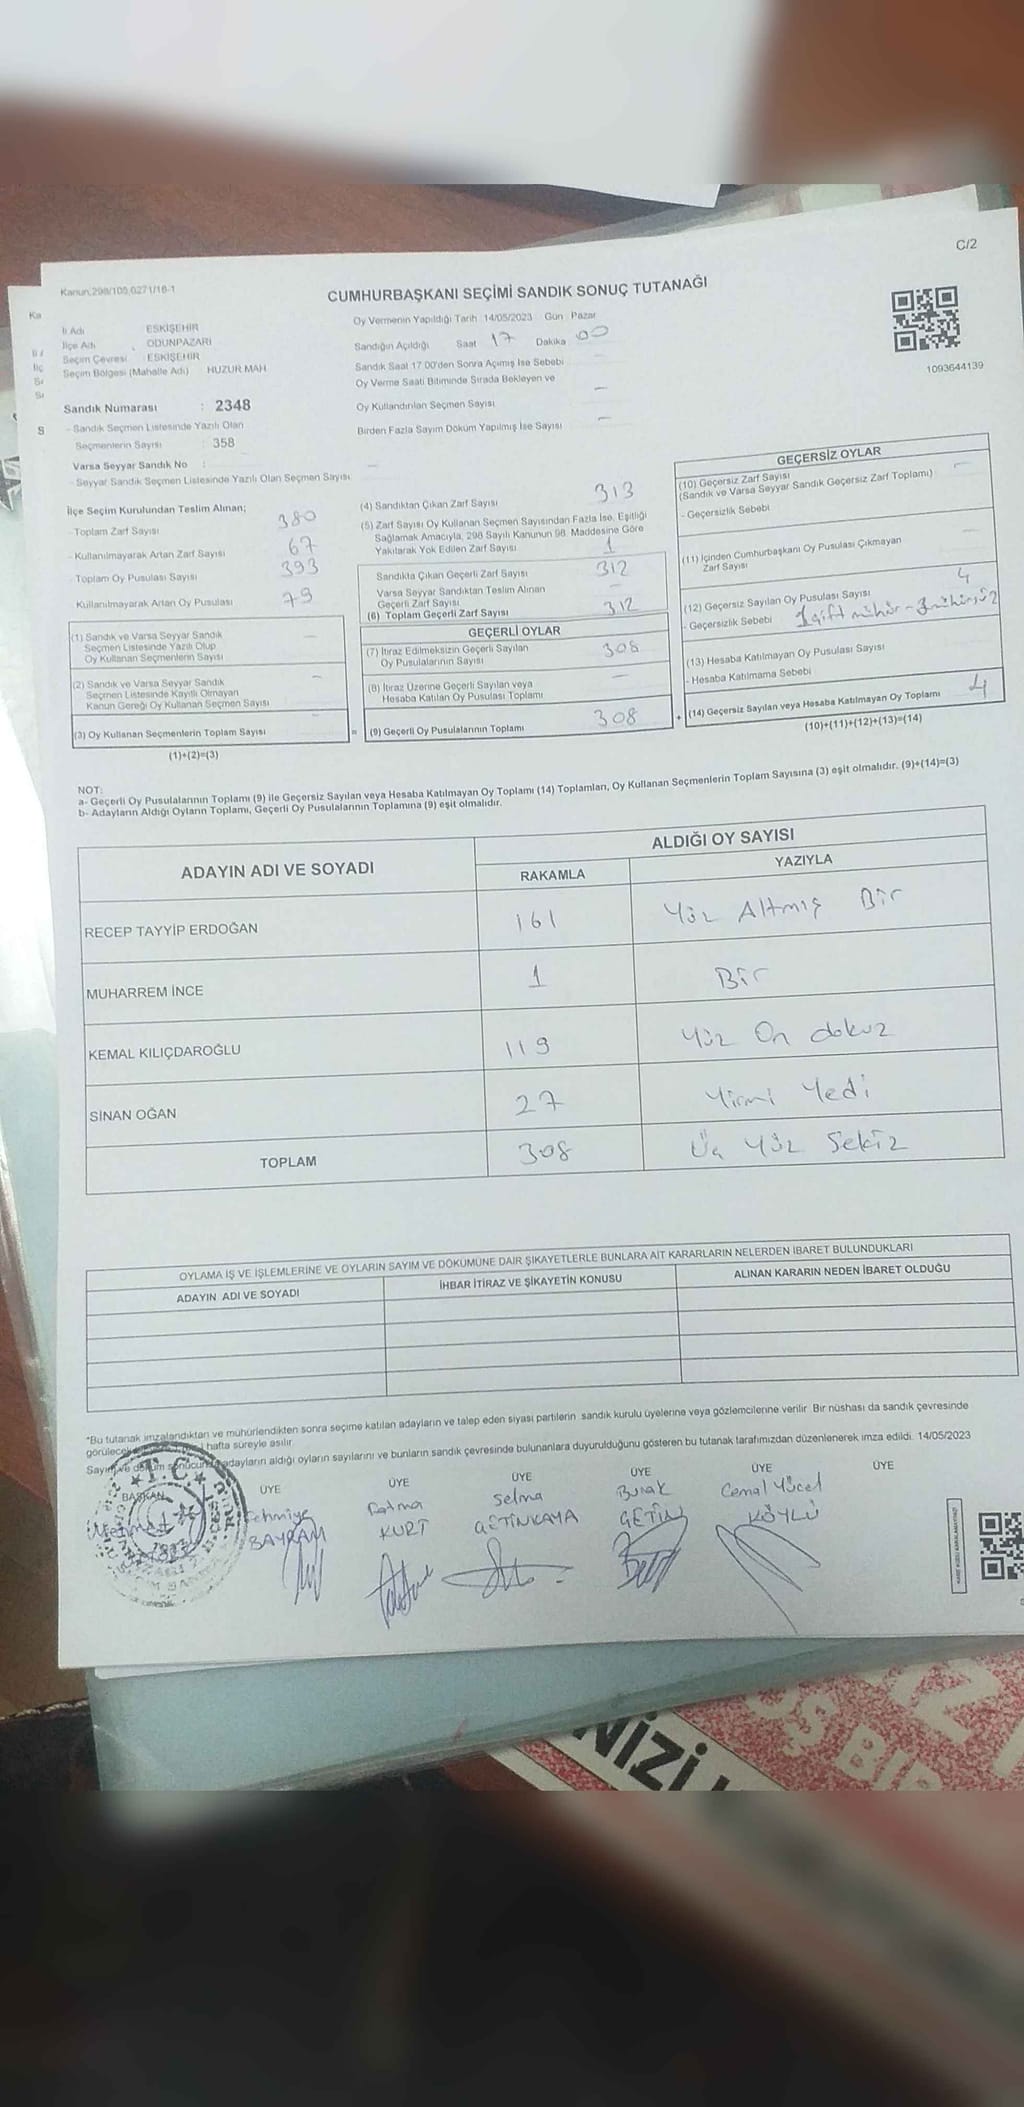 C/2
Kanun:298/105,0271/18-1
CUMHURBAŞKANI SEÇİMİ SANDIK SONUÇ TUTANAĞI
1093644139
İl Adı ESKİŞEHİR
İlçe Adı ODUNPAZARI
Seçim Çevresi : ESKİŞEHİR
Seçim Bölgesi (Mahalle Adı) HUZUR MAH
Sandık Numarası : 2348
- Sandık Seçmen Listesinde Yazılı Olan
Seçmenlerin Sayısı : 358
Varsa Seyyar Sandık No :
- Seyyar Sandık Seçmen Listesinde Yazılı Olan Seçmen Sayısı
Oy Vermenin Yapıldığı Tarih 14/05/2023 Gün Pazar
Sandığın Açıldığı Saat 17 Dakika 00
Sandık Saat 17.00'den Sonra Açımış İse Sebebi
Oy Verme Saati Bitiminde Sırada Bekleyen ve
Oy Kullandırılan Seçmen Sayısı —
Birden Fazla Sayım Döküm Yapılmış İse Sayısı —
İlçe Seçim Kurulundan Teslim Alınan;
- Toplam Zarf Sayısı 380
- Kullanılmayarak Artan Zarf Sayısı 67
- Toplam Oy Pusulası Sayısı 393
- Kullanılmayarak Artan Oy Pusulası 79
(1) Sandık ve Varsa Seyyar Sandık
Seçmen Listesinde Yazılı Olup
Oy Kullanan Seçmenlerin Sayısı —
(2) Sandık ve Varsa Seyyar Sandık
Seçmen Listesinde Kayıtlı Olmayan
Kanun Gereği Oy Kullanan Seçmen Sayısı —
(3) Oy Kullanan Seçmenlerin Toplam Sayısı —
(1)+(2)=(3)
=
(4) Sandıktan Çıkan Zarf Sayısı 313
(5) Zarf Sayısı Oy Kullanan Seçmen Sayısından Fazla İse, Eşitliği
Sağlamak Amacıyla, 298 Sayılı Kanunun 98. Maddesine Göre
Yakılarak Yok Edilen Zarf Sayısı 1
Sandıkta Çıkan Geçerli Zarf Sayısı 312
Varsa Seyyar Sandıktan Teslim Alınan
Geçerli Zarf Sayısı —
(6) Toplam Geçerli Zarf Sayısı 312
GEÇERLİ OYLAR
(7) İtiraz Edilmeksizin Geçerli Sayılan
Oy Pusulalarının Sayısı 308
(8) İtiraz Üzerine Geçerli Sayılan veya
Hesaba Katılan Oy Pusulası Toplamı —
(9) Geçerli Oy Pusulalarının Toplamı 308
+
GEÇERSİZ OYLAR
(10) Geçersiz Zarf Sayısı —
(Sandık ve Varsa Seyyar Sandık Geçersiz Zarf Toplamı)
- Geçersizlik Sebebi
(11) İçinden Cumhurbaşkanı Oy Pusulası Çıkmayan
Zarf Sayısı
(12) Geçersiz Sayılan Oy Pusulası Sayısı 4
- Geçersizlik Sebebi 1 çift mühür - 3 mühürsüz
(13) Hesaba Katılmayan Oy Pusulası Sayısı
- Hesaba Katılmama Sebebi
(14) Geçersiz Sayılan veya Hesaba Katılmayan Oy Toplamı 4
(10)+(11)+(12)+(13)=(14)
NOT:
a- Geçerli Oy Pusulalarının Toplamı (9) ile Geçersiz Sayılan veya Hesaba Katılmayan Oy Toplamı (14) Toplamları, Oy Kullanan Seçmenlerin Toplam Sayısına (3) eşit olmalıdır. (9)+(14)=(3)
b- Adayların Aldığı Oyların Toplamı, Geçerli Oy Pusulalarının Toplamına (9) eşit olmalıdır.
ADAYIN ADI VE SOYADI ALDIĞI OY SAYISI
RAKAMLA YAZIYLA
RECEP TAYYİP ERDOĞAN 161 Yüz Altmış Bir
MUHARREM İNCE 1 Bir
KEMAL KILIÇDAROĞLU 119 Yüz On dokuz
SİNAN OĞAN 27 Yirmi Yedi
TOPLAM 308 Üç Yüz Sekiz
OYLAMA İŞ VE İŞLEMLERİNE VE OYLARIN SAYIM VE DÖKÜMÜNE DAİR ŞİKAYETLERLE BUNLARA AİT KARARLARIN NELERDEN İBARET BULUNDUKLARI
ADAYIN ADI VE SOYADI İHBAR İTİRAZ VE ŞİKAYETİN KONUSU ALINAN KARARIN NEDEN İBARET OLDUĞU
*Bu tutanak imzalandıktan ve mühürlendikten sonra seçime katılan adayların ve talep eden siyasi partilerin sandık kurulu üyelerine veya gözlemcilerine verilir. Bir nüshası da sandık çevresinde
görülecek hafta süreyle asılır.
Sayım ve döküm sonucunda adayların aldığı oyların sayılarını ve bunların sandık çevresinde bulunanlara duyurulduğunu gösteren bu tutanak tarafımızdan düzenlenerek imza edildi. 14/05/2023
BAŞKAN ÜYE ÜYE ÜYE ÜYE ÜYE ÜYE
Mehmet Fehmiye Fatma Selma Burak Cemal Yücel
BAYRAM KURT ÇETİNKAYA ÇETİN KÖYLÜ
T.C.
NİZİ
Ş BİR